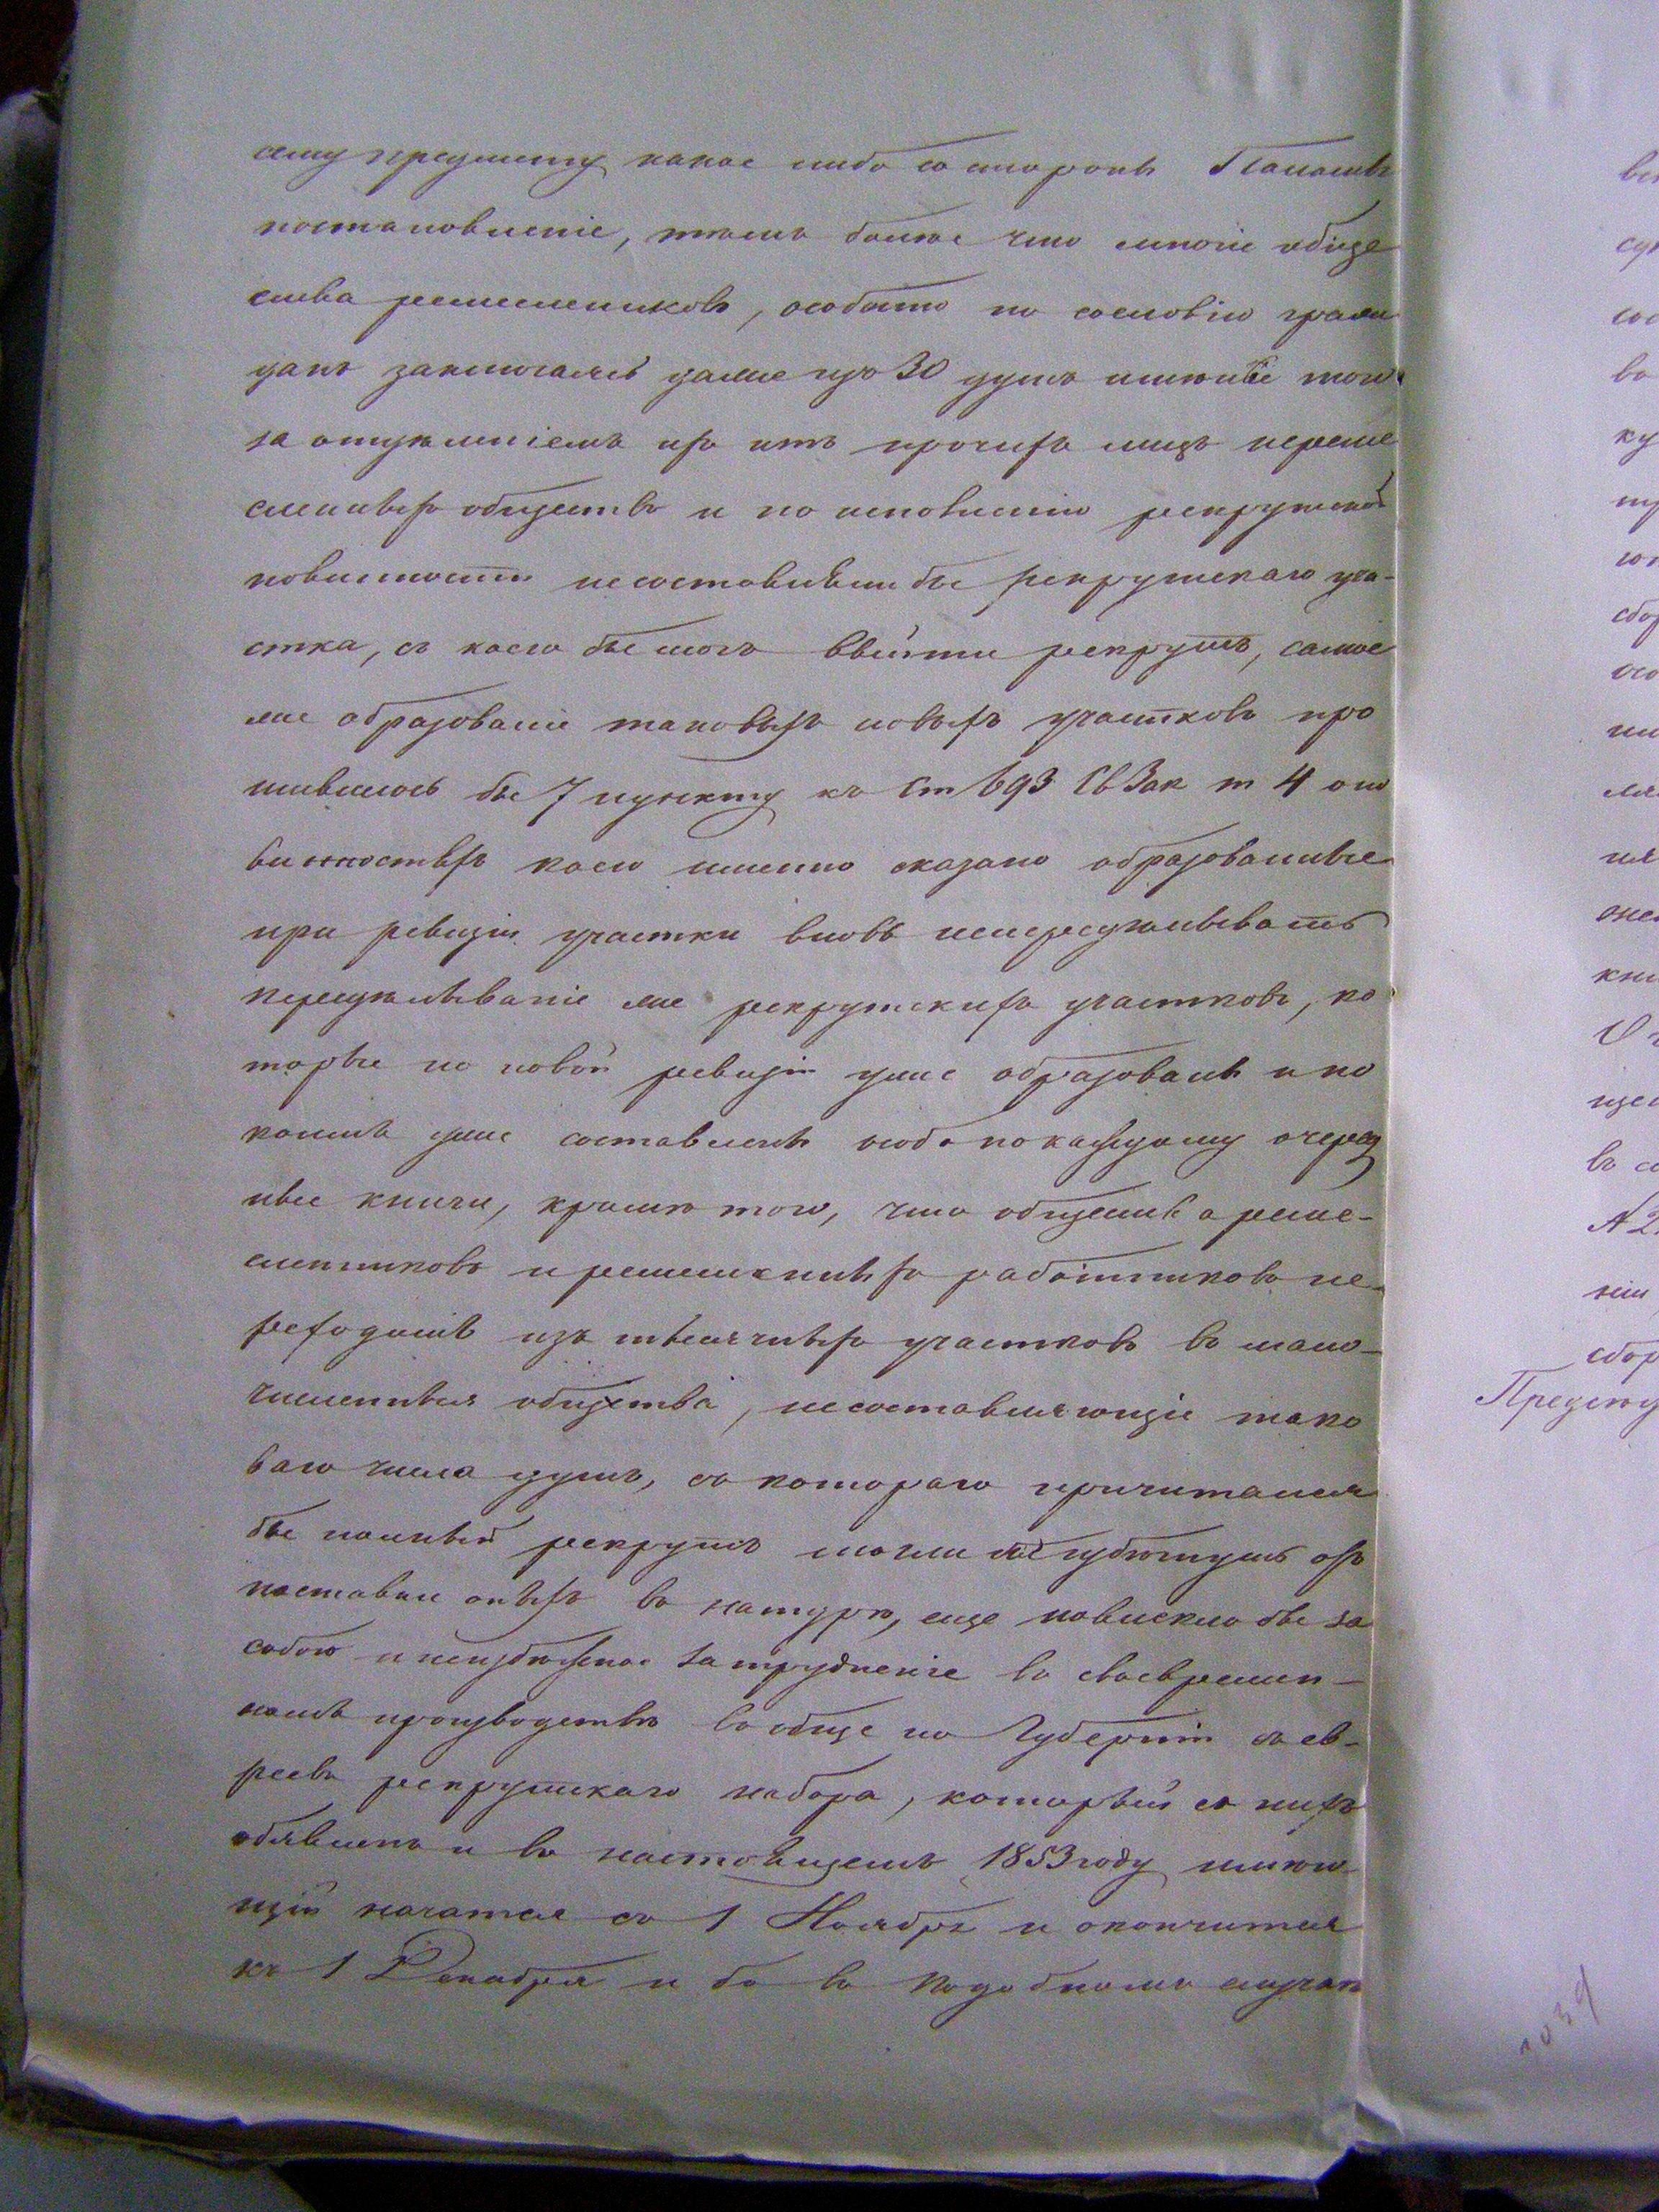 сему предмету какое либо со стороны Палаты
постановленіе, тѣмъ болѣе что многіе обще
ства ремеслениковъ, особенно по сословію граж
данъ заключаясь далее изъ 30 душъ и менѣе того
за отдѣленіемъ изъ нихъ прочихъ лицъ нереме
сленныхъ обществъ и по исполненію рекрутской
повинности несоставивши бы рекрутскаго уча-
стка, съ коего бы могъ выйти рекрутъ, самое
же образованіе таковыхъ новыхъ участковъ про
тивилось бы 7 пункту къ Ст 693 Св Зак т 4 о по
винностяхъ коего именно сказано образованные
при ревизіи участки вновь непередѣлывать
передѣлываніе же рекрутскихъ участковъ, ко
торые по новой ревизіи уже образованы и по
коимъ уже составлены особо по каждому очеред
ные книги, кромѣ того, что общества ремес-
ленниковъ и ремесленныхъ работниковъ пе-
реходивъ изъ тысячныхъ участковъ въ мало-
численныя общества, несоставляющіе тако
ваго числа душъ, съ котораго причитался
бы полный рекрутъ могли бы избѣгнуть отъ
поставки оныхъ въ натурѣ, еще повлекло бы за
собою и неизбѣжное затрудненіе въ своевремен-
номъ производствѣ вообще по Губерніи съ ев-
реевъ рекрутскаго набора, который съ нихъ
обявленъ и въ настоящемъ 1853 году имѣю
щій начатся съ 1 Ноября и окончится
къ 1 Декабря ибо въ подобномъ случаѣ
Предсѣд